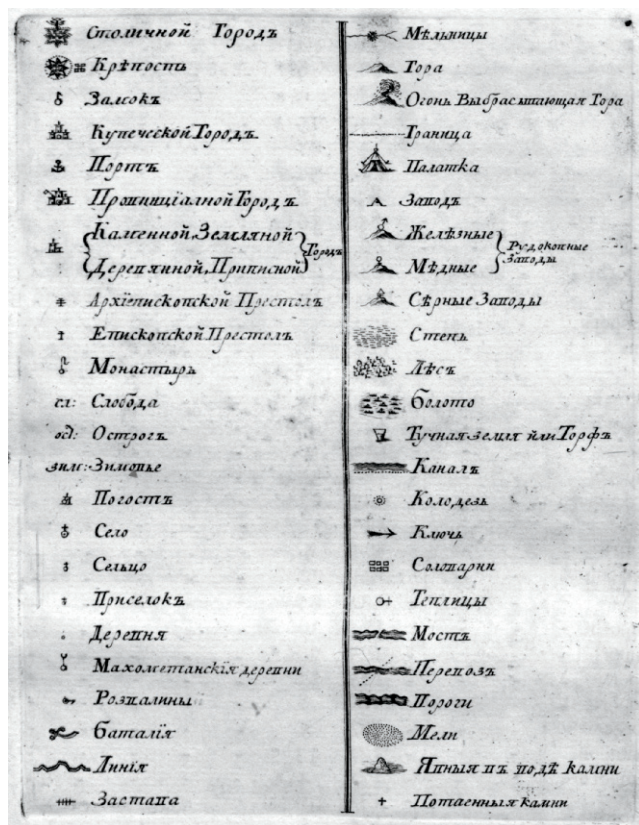 Столичной Городъ
Крѣпость
Замокъ
Купеческой Городъ
Портъ
Провинцїалной Городъ
Каменной, Земляной
Деревянной, Приписной
Городъ
Архїепископской Престолъ
Епископской Престолъ
Монастырь
сл: Слобода
ост: Острогъ
зим: Зимовье
Погостъ
Село
Сельцо
Приселокъ
Деревня
Махометанскїя деревни
Розвалины
Баталїя
Линїя
Застава
Мѣльницы
Гора
Огонь Выбрасывающая Гора
Граница
Палатка
Заводъ
Желѣзные
Мѣдные
Рудокопные
Заводы
Сѣрные Заводы
Степь
Лѣсъ
Болото
Тучная земля или Торфъ
Каналъ
Колодезь
Ключь
Соловарни
Теплицы
Мостъ
Перевозъ
Пороги
Мели
Явныя въ водѣ камни
Потаенныя камни